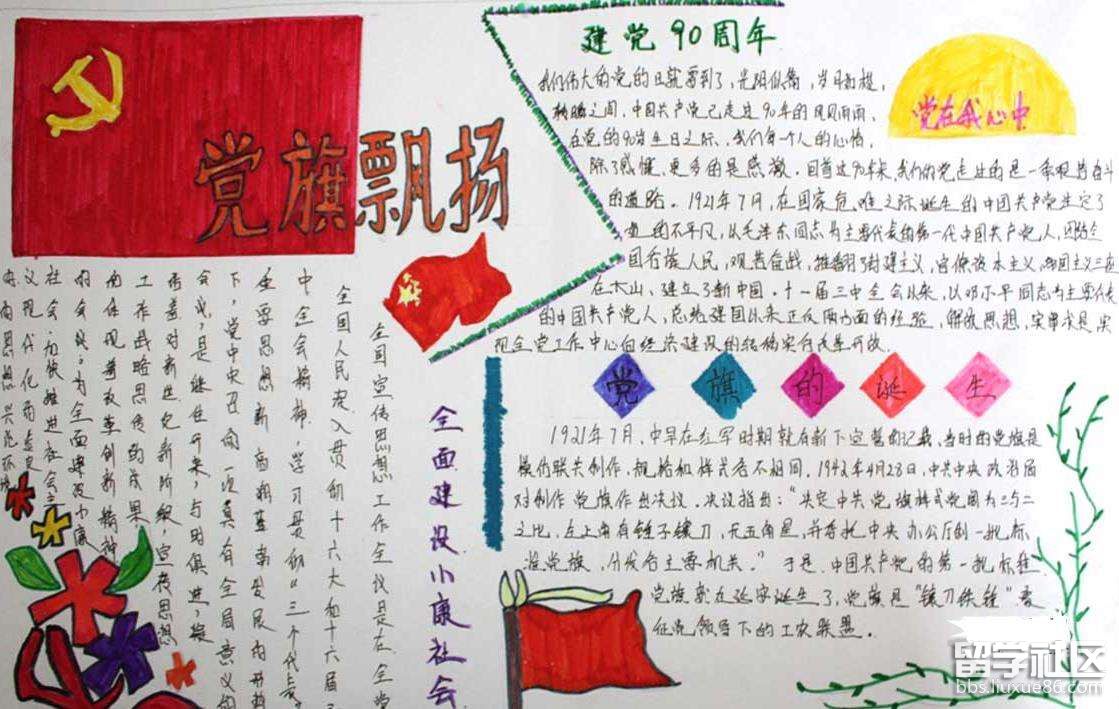 党旗飘扬
建党90周年
我们伟大的党的日就要到了，光阴似箭，岁月如梭，
转瞬之间，中国共产党已走过90年的风风雨雨，
在党的90岁生日之际，我们每一个人的心情，
除了感慨，更多的是感激。回首这90年来，我们的党走过的是一条艰苦奋斗
的道路。1921年7月，在国家危难之际诞生的中国共产党注定了
的不平凡，以毛泽东同志为主要代表的第一代中国共产党人，团结全
国各族人民，艰苦奋战，推翻了封建主义，官僚资本主义，帝国主义三座
大山，建立了新中国。十一届三中全会以来，以邓小平同志为主要代表
的中国共产党人，总结建国以来正反两方面的经验，解放思想，实事求是，实
现全党工作中心向经济建设的转移实行改革开放。
党在我心中
党旗的诞生
1921年7月，中早在红军时期就有新下宣誓的记载，当时的党旗是
模仿联共制作，规格和样式各不相同。1942年4月28日，中共中央政治局
对制作党旗作出决议。决议指出：“决定中共党旗样式宽阔为三与二
之比，左上角有锤子镰刀，无五角星，并委托中央办公厅制一批标
准党旗，分发各主要机关。”于是，中国共产党的第一批标准
党旗就在延安诞生了，党旗是“镰刀铁锤”象
征党领导下的工农联盟。
全面建设小康社会
全国宣传思想工作会议是在全党
全国人民深入贯彻十六大和十六届三
中全会精神，学习贯彻“三个代表”
重要思想新高潮蓬勃发展的形势
下，党中央召开的一次具有全局意义的
会议，是继往开来，与时俱进，按
工作战略思想的成果
的体现着改革创新精神
的会议，为全面建设小康
社会，加快推进社会主
义现代化
留学社区
bbs.liuxue86.com